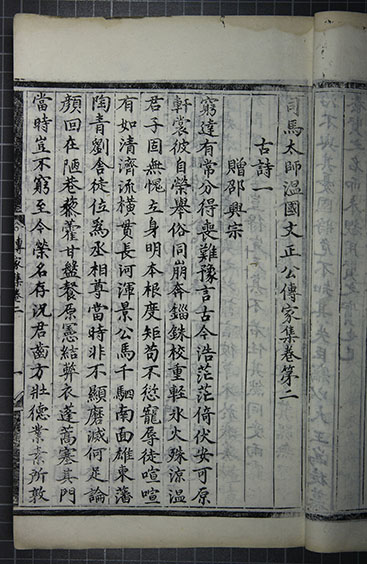 司馬太師溫國文正公傳家集卷第二
古詩一
贈邵興宗
窮達有常分得喪難豫言古今浩茫茫倚伏安可原
軒裳彼自榮舉俗同崩奔錙銖校重輕氷火殊涼溫
君子固無愧立身明本根度矩苟不愆寵辱徒喧喧
有如清濟流橫貫長河渾景公馬千駟南面雄東藩
陶青劉舍徒位爲丞相尊當時非不顯磨滅何足論
顔回在陋巷藜藿甘盤餐原憲結弊衣蓬蒿塞其門
當時豈不窮至今榮名存況君齒方壯德業素所敦
傳家集卷二
一